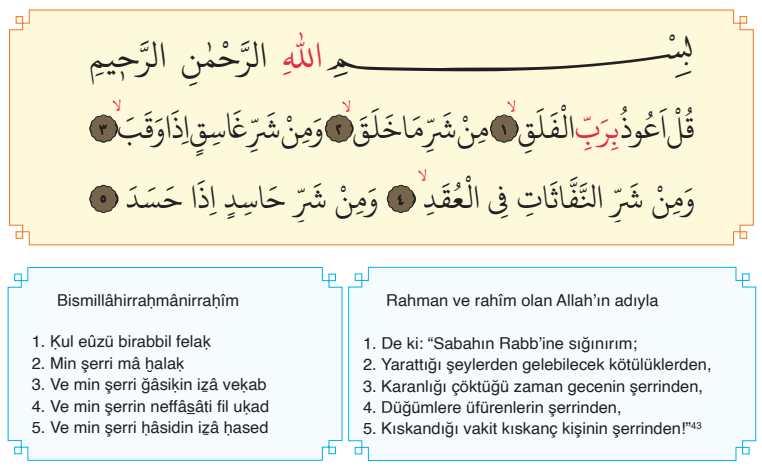 بِسْمِ اللّٰهِ الرَّحْمٰنِ الرَّحٖيمِ
قُلْ اَعُوذُ بِرَبِّ الْفَلَقِۙ ﴿١﴾ مِنْ شَرِّ مَا خَلَقَۙ ﴿٢﴾ وَمِنْ شَرِّ غَاسِقٍ اِذَا وَقَبَۙ ﴿٣﴾
وَمِنْ شَرِّ النَّفَّاثَاتِ فِى الْعُقَدِۙ ﴿٤﴾ وَمِنْ شَرِّ حَاسِدٍ اِذَا حَسَدَ ﴿٥﴾
Bismillâhirraḥmânirraḥîm
1. Ḳul eûzü birabbil felaḳ
2. Min şerri mâ ḫalaḳ
3. Ve min şerri ğâsiḳin iẕâ veḳab
4. Ve min şerrin neffâs̱âti fil uḳad
5. Ve min şerri ḥâsidin iẕâ ḥased
Rahman ve rahîm olan Allah’ın adıyla
1. De ki: “Sabahın Rabb’ine sığınırım;
2. Yarattığı şeylerden gelebilecek kötülüklerden,
3. Karanlığı çöktüğü zaman gecenin şerrinden,
4. Düğümlere üfürenlerin şerrinden,
5. Kıskandığı vakit kıskanç kişinin şerrinden!”⁴³